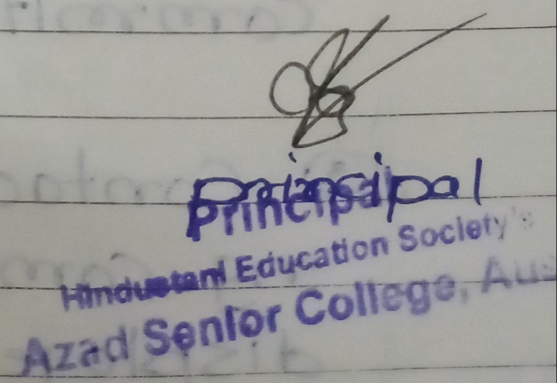 Principal
Hindustani Education Society's
Azad Senior College, Aus